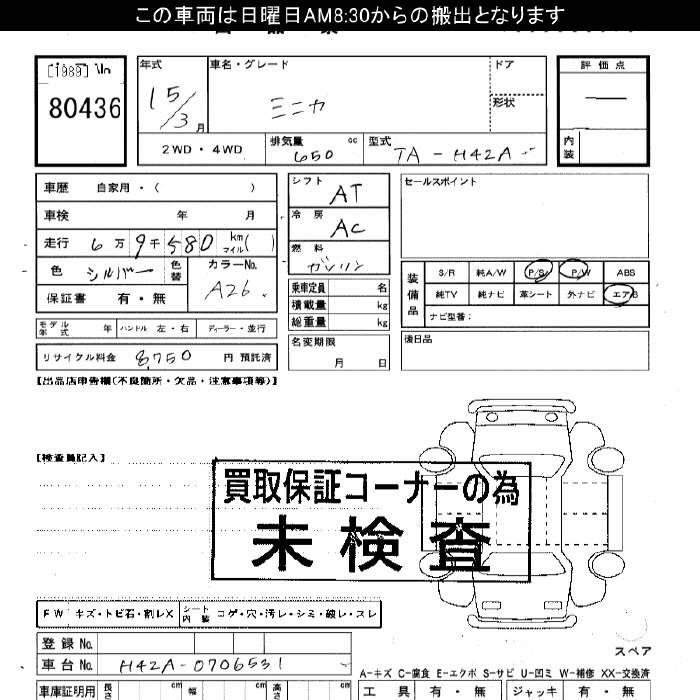 この車両は日曜日AM8:30からの搬出となります
[1989]
80436
年式
15/3月
車名・グレード
ミニカ
ドア
形状
評価点
—
内装
2WD・4WD
排気量
650 cc
型式
TA-H42A-
車歴 自家用・( )
車検 年 月
走行 6万9千580 km マイル( )
色 シルバー 色替
カラーNo.
A26.
保証書 有・無
モデル年式 年 ハンドル 左・右 ディーラー・並行
リサイクル料金 8,750 円 預託済
シフト AT
冷房 AC
燃料 ガソリン
乗車定員 名
積載量 kg
総重量 kg
名変期限
月 日
セールスポイント
装備品
S/R 純A/W P/S P/W ABS
純TV 純ナビ 革シート 外ナビ エアB
ナビ型番:
後日品
【出品店申告欄(不良箇所・欠品・注意事項等)】
【検査員記入】
買取保証コーナーの為
未検査
FW キズ・トビ石・割レX
シート内装 コゲ・穴・汚レ・シミ・破レ・スレ
登録No.
車台No. H42A-0706531
スペア
A-キズ C-腐食 E-エクボ S-サビ U-凹ミ W-補修 XX-交換済
車庫証明用 長さ cm 幅 cm 高さ cm
工具 有・無 ジャッキ 有・無